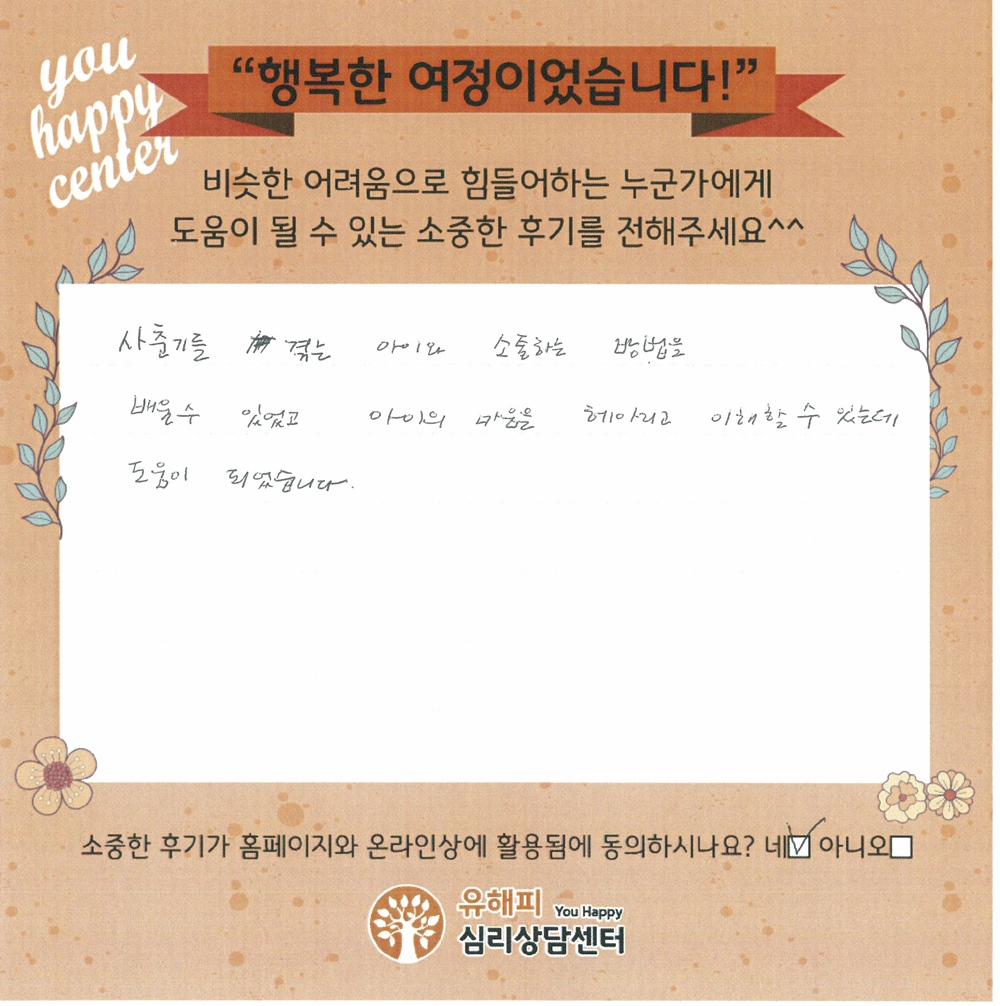 you
happy
center
“행복한 여정이었습니다!”
비슷한 어려움으로 힘들어하는 누군가에게
도움이 될 수 있는 소중한 후기를 전해주세요^^
사춘기를 겪는 아이와 소통하는 방법을
배울수 있었고 아이의 마음을 헤아리고 이해할 수 있는데
도움이 되었습니다.
소중한 후기가 홈페이지와 온라인상에 활용됨에 동의하시나요? 네☑ 아니오☐
유해피 You Happy
심리상담센터